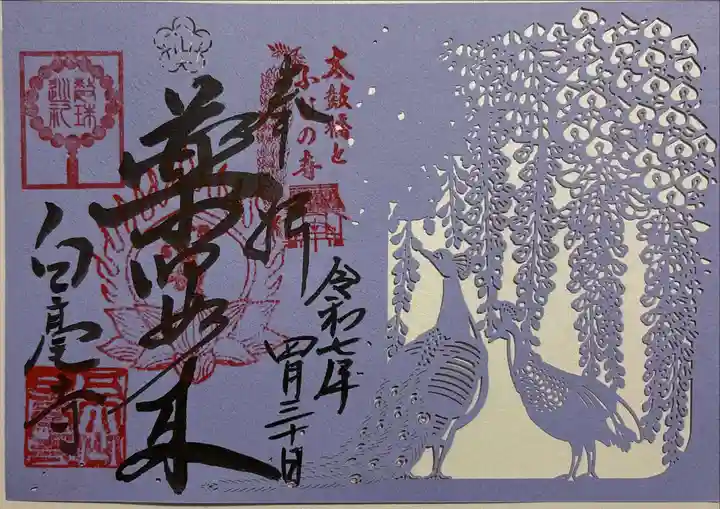 太鼓橋と
ふじの寺
奉拝
令和七年
四月三十日
薬師如来
数珠
巡礼
白毫寺